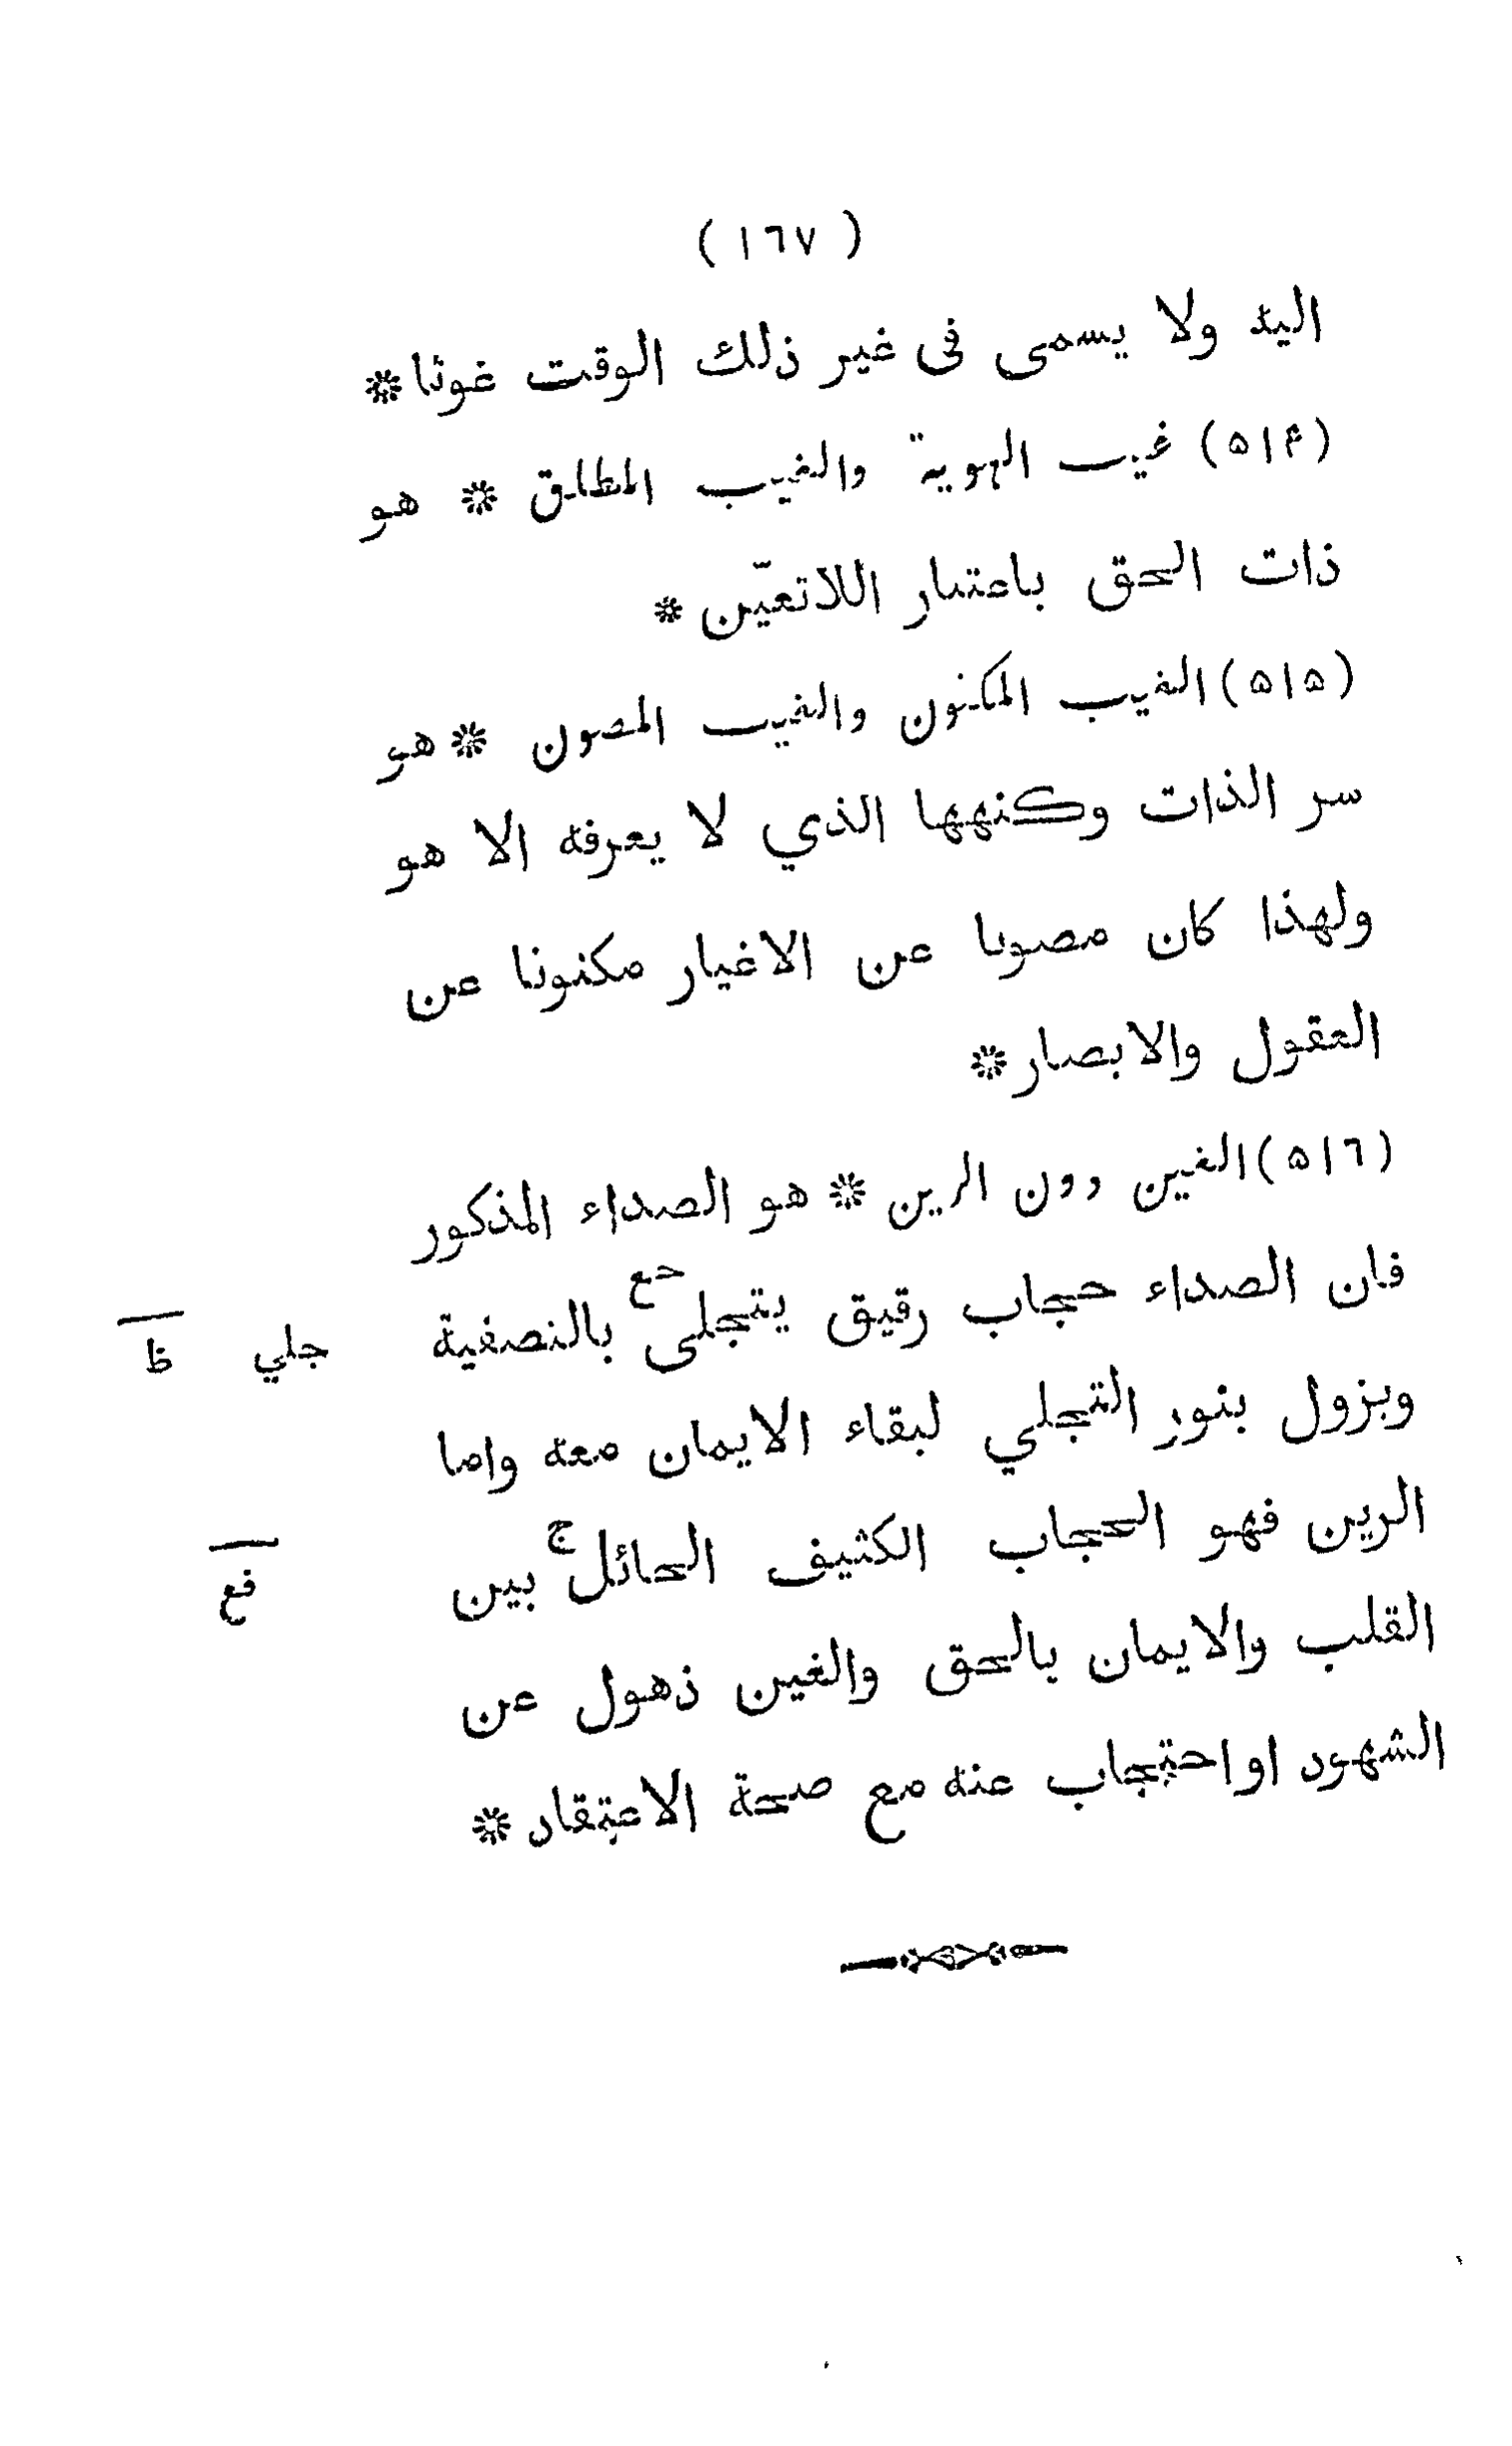 ( ١٦٧ )
اليه ولا يسمى فى غير ذلك الوقت غوثا *
(٥١۴) غيب الهوية والغيب المطلق * هو
ذات الحق باعتبار اللاتعيّن *
(٥١٥) الغيب المكنون والغيب المصون * هو
سر الذات وكنهها الذي لا يعرفه الا هو
ولهذا كان مصونا عن الاغيار مكنونا عن
العقول والابصار *
(٥١٦) الغين دون الرين * هو الصداء المذكور
فان الصداء حجاب رقيق يتجلى خع بالتصفية جلي ظ
ويزول بنور التجلي لبقاء الايمان معه واما
الرين فهو الحجاب الكثيف الحائل ج بين فع
القلب والايمان بالحق والغين ذهول عن
الشهود او احتجاب عنه مع صحة الاعتقاد *